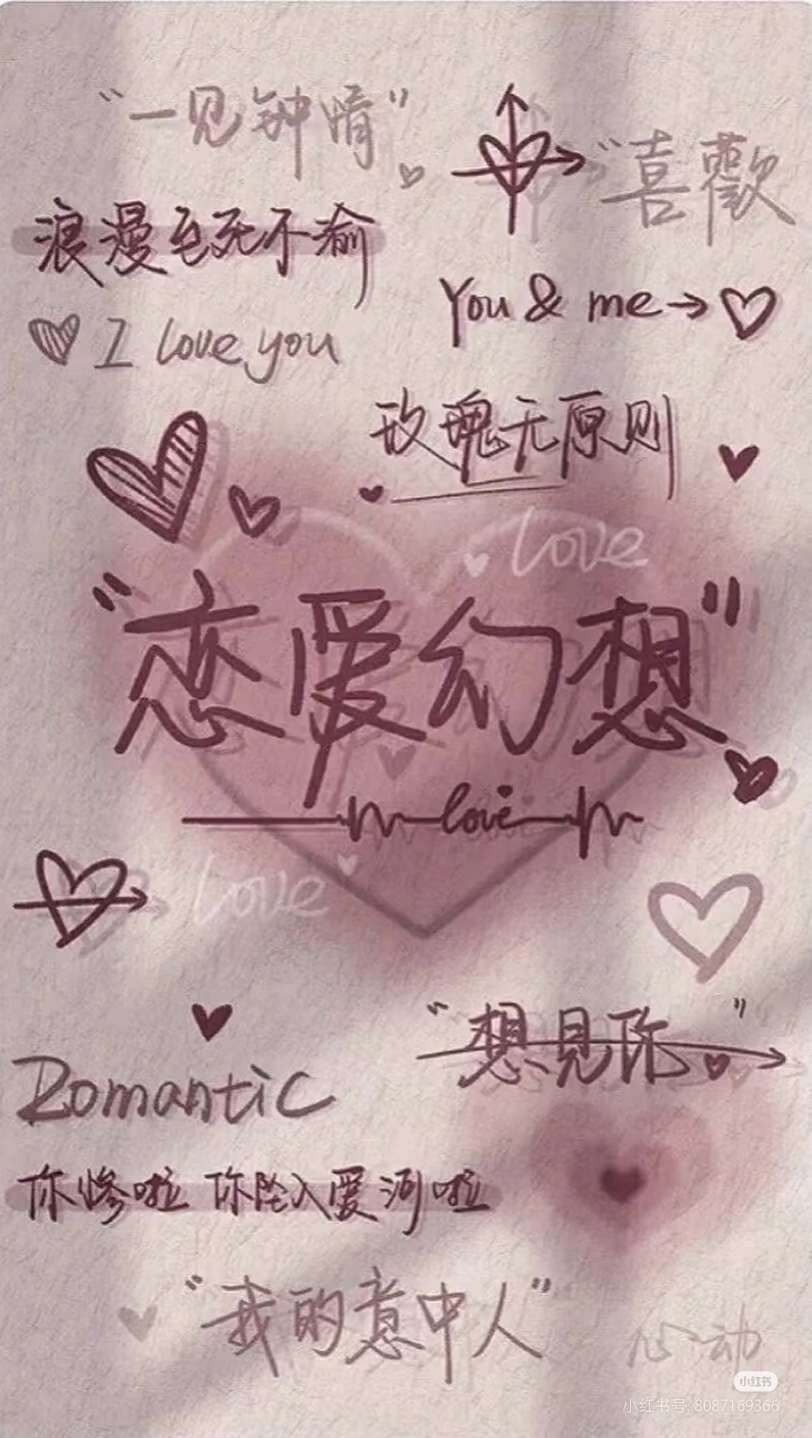 “一见钟情”
“喜歡
浪漫至死不渝
You & me
I love you
玫瑰无原则
love
“恋爱幻想”
love
love
“想见你”
Romantic
你惨啦 你坠入爱河啦
“我的意中人”
心动
小红书
小红书号: 8087169366